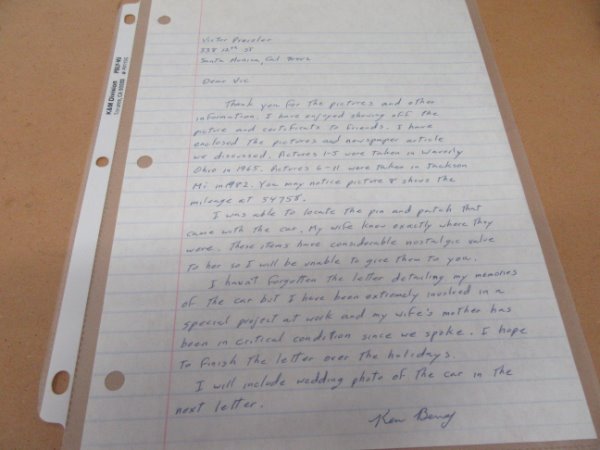 K&M Division
POLY-95
Torrance, CA
Victor
338 12th St
Santa Monica, Cal
Dear Vic
Thank you for the pictures and other
information. I have enjoyed showing off the
picture and certificate to friends. I have
enclosed the pictures and newspaper article
we discussed. Pictures 1-5 were taken in Waverly
Ohio in 1965. Pictures 6-11 were taken in Jackson
Mi in 1982. You may notice picture 8 shows the
mileage at 54758.
I was able to locate the pin and patch that
came with the car. My wife knew exactly where they
were. These items have considerable nostalgic value
to her so I will be unable to give them to you.
I havn't forgotten the letter detailing my memories
of the car but I have been extremely involved in a
special project at work and my wife's mother has
been in critical condition since we spoke. I hope
to finish the letter over the holidays.
I will include wedding photo of the car in the
next letter.
Ken